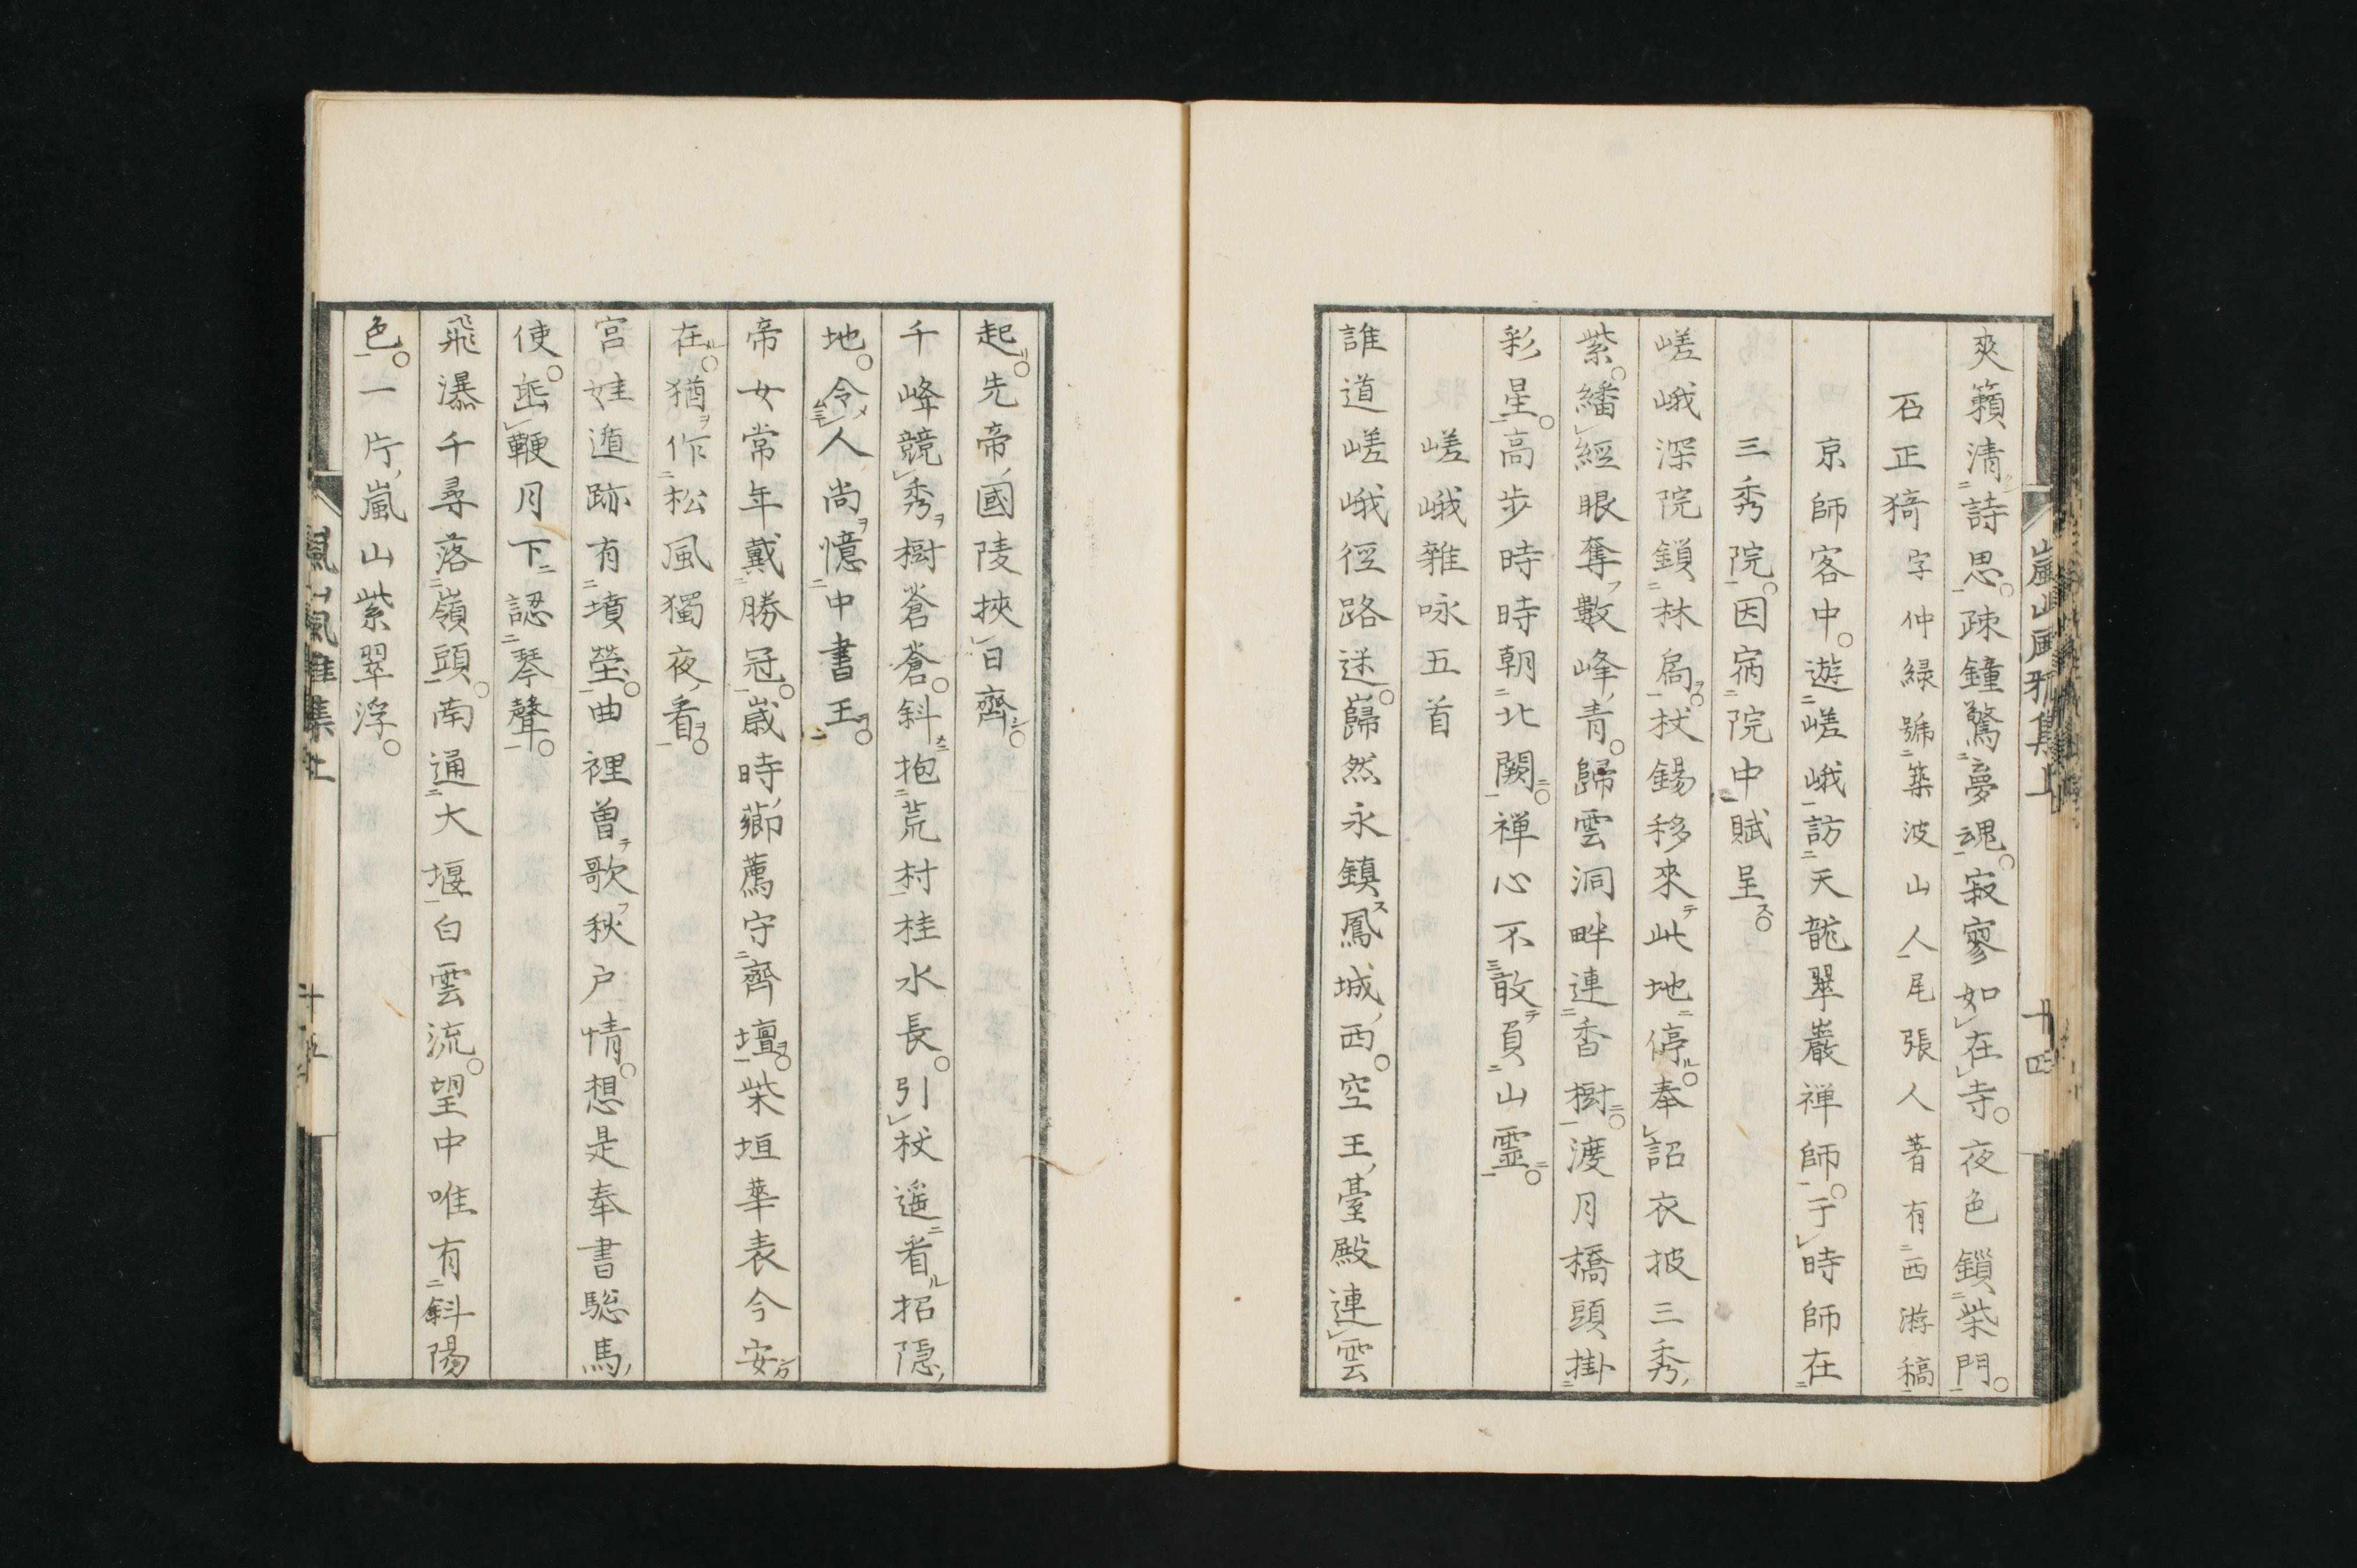 爽籟清詩思疎鐘驚夢魂寂寥如在寺夜色鎖柴門
石正猗字仲緑號築波山人尾張人著有西游稿
京師客中遊嵯峨訪天龍翠巖禅師于時師在
三秀院因宿院中賦呈
嵯峨深院鎖林扃杖錫移來此地停奉詔衣披三秀
紫繙經眼奪數峰青歸雲洞畔連香樹渡月橋頭掛
彩星高步時時朝北闕禅心不敢負山霊
嵯峨雜咏五首
誰道嵯峨徑路迷巋然永鎮鳳城西空王臺殿連雲
嵐山風雅集上
十四
起先帝國陵挾日齊
千峰競秀樹蒼蒼斜抱荒村桂水長引杖遥看招隠
地令人尚憶中書王
帝女常年戴勝冠歳時薌薦守齊壇柴垣華表今安
在猶作松風獨夜看
宮娃遁跡有墳塋曲裡曽歌秋戸情想是奉書駿馬
使鞭月下認琴聲
飛瀑千尋落嶺頭南通大堰白雲流望中唯有斜陽
色一片嵐山紫翠浮
嵐山風雅集上
十五